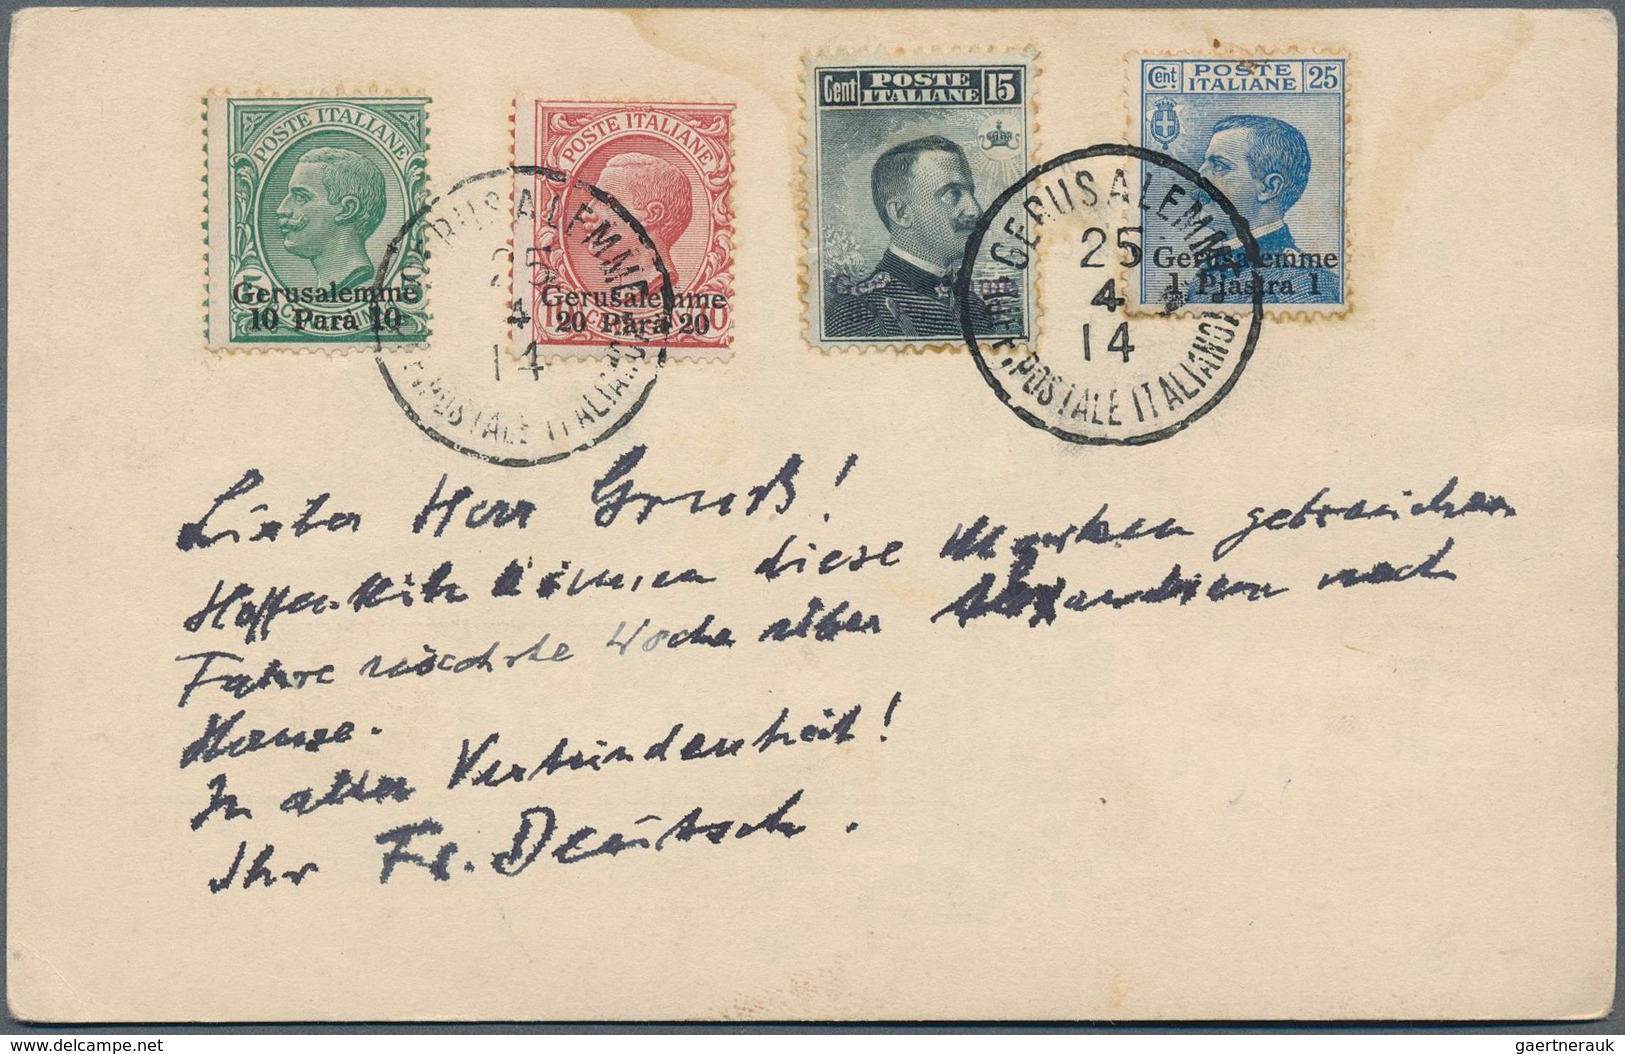 POSTE ITALIANE
Gerusalemme
10 Parà 10
POSTE ITALIANE
Gerusalemme
20 Parà 20
Cent POSTE ITALIANE 15
Cent. POSTE ITALIANE 25
Gerusalemme
1 Piastra 1
GERUSALEMME
25
4
14
POSTALE ITALIANO
GERUSALEMME
25
4
14
POSTALE ITALIANO
Lieber Herr Gruß!
Hoffentlich können diese Marken gebrauchen
Fahre nächste Woche über Alexandrien nach
Hause.
In alter Verbundenheit!
Ihr Fr. Deutsch.
delcampe.net
gaertnerauk